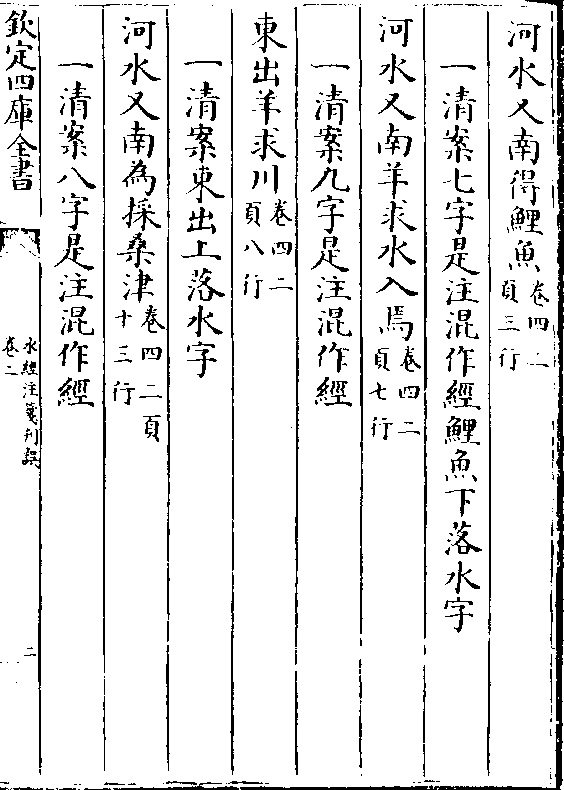 河水又南得鯉魚卷四二頁三行
一清案七字是注混作經鯉魚下落水字
河水又南羊求水入焉卷四二頁七行
一清案九字是注混作經
東出羊求川卷四二頁八行
一清案東出上落水字
河水又南為採桑津卷四二頁十三行
一清案八字是注混作經
欽定四庫全書
水經注箋刊誤
卷二
二